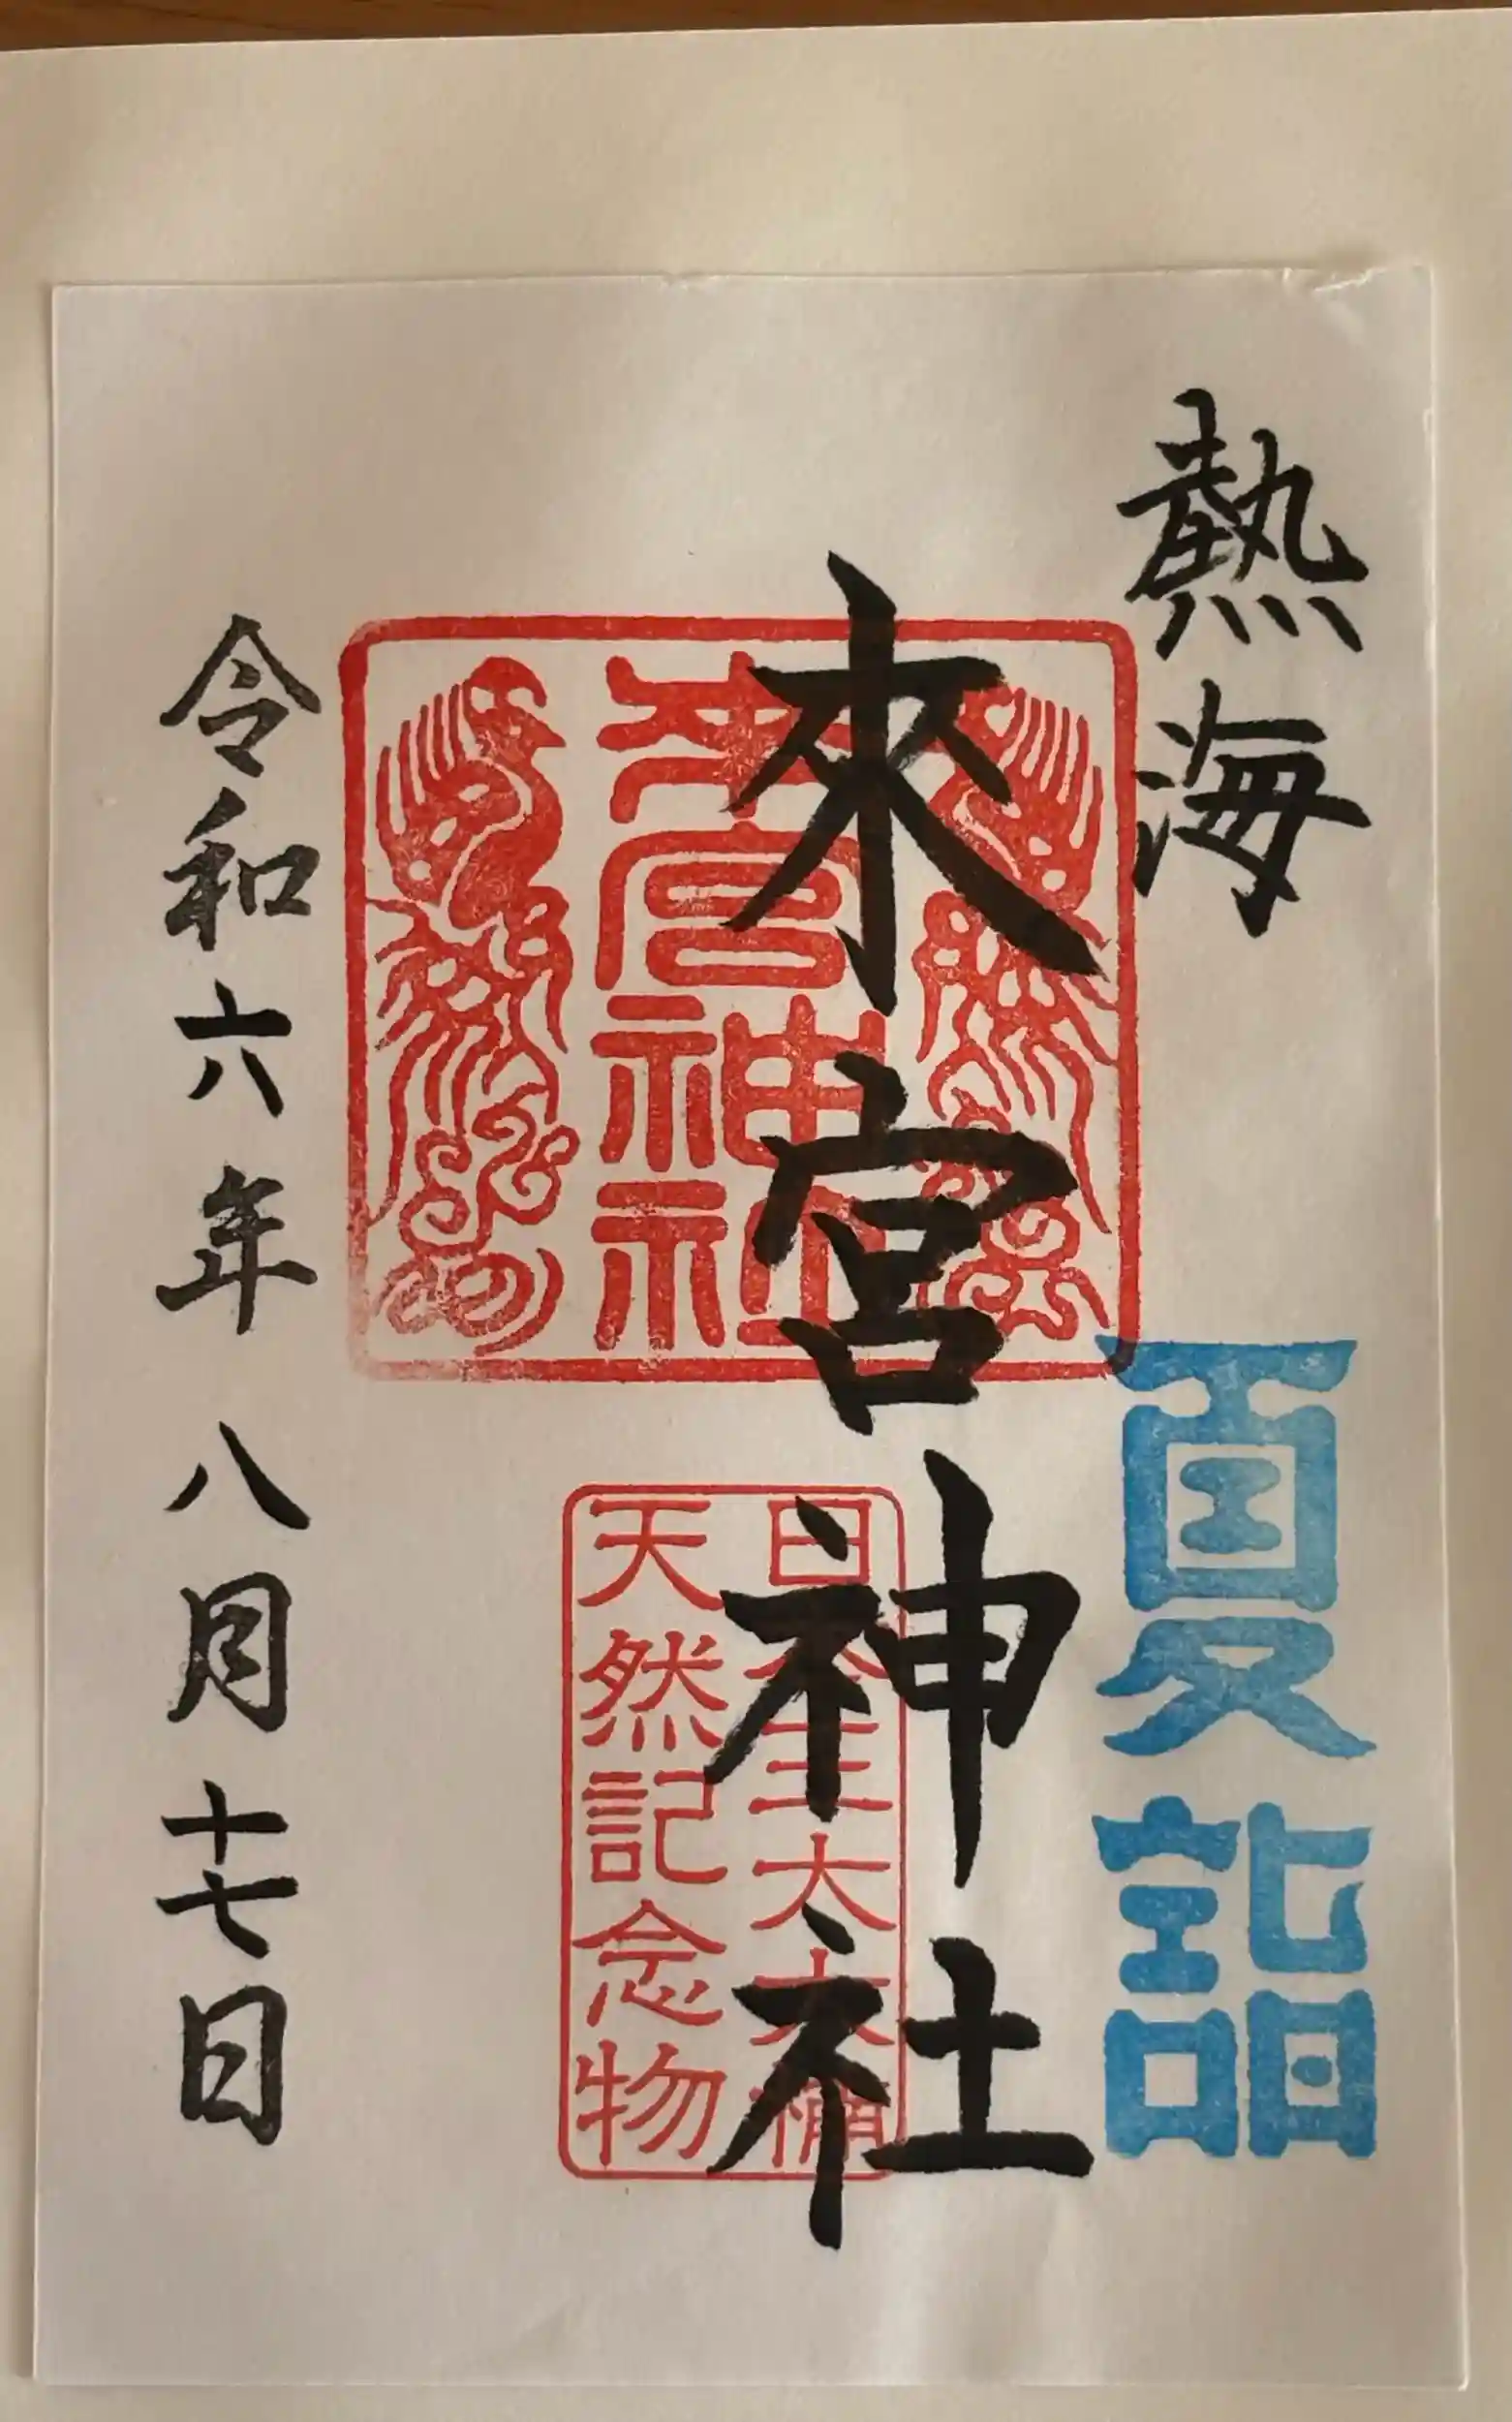 熱海
夏詣
來宮神社
來宮神社
日本一大楠
天然記念物
令和六年八月十七日